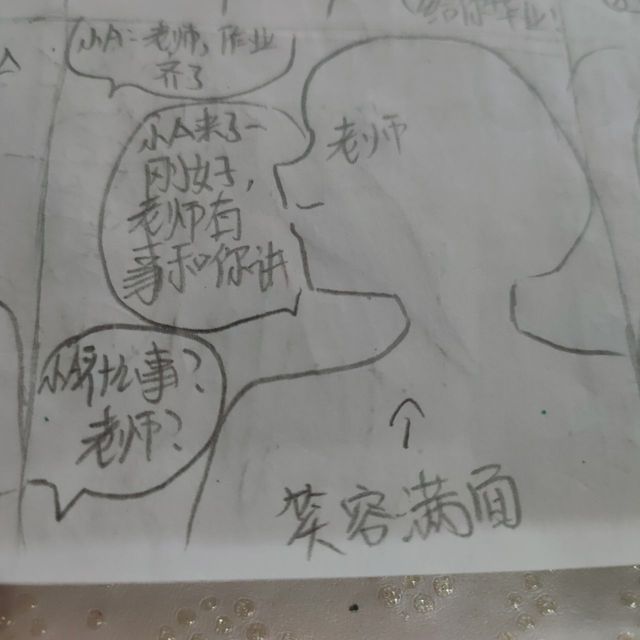 小A:老师,作业
齐了
小A来了一
刚好,
老师有
事和你讲
老师
小A:什么事?
老师?
笑容满面